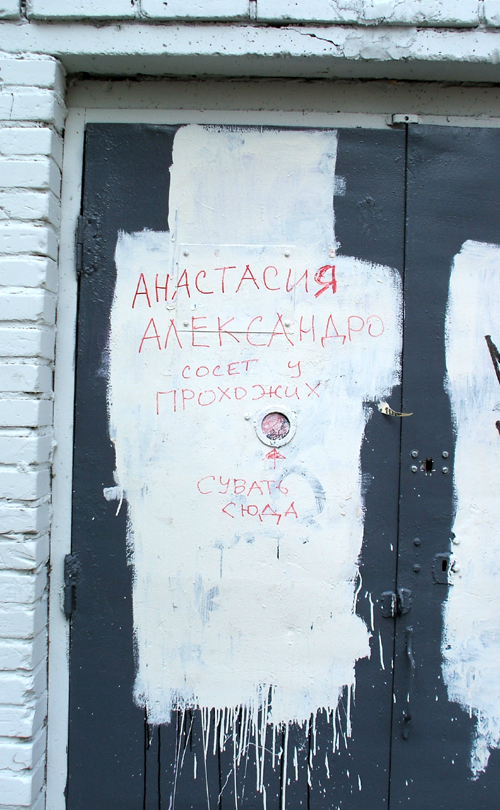 АНАСТАСИЯ
АЛЕКСАНДРО
СОСЕТ У
ПРОХОЖИХ
СУВАТЬ
СЮДА